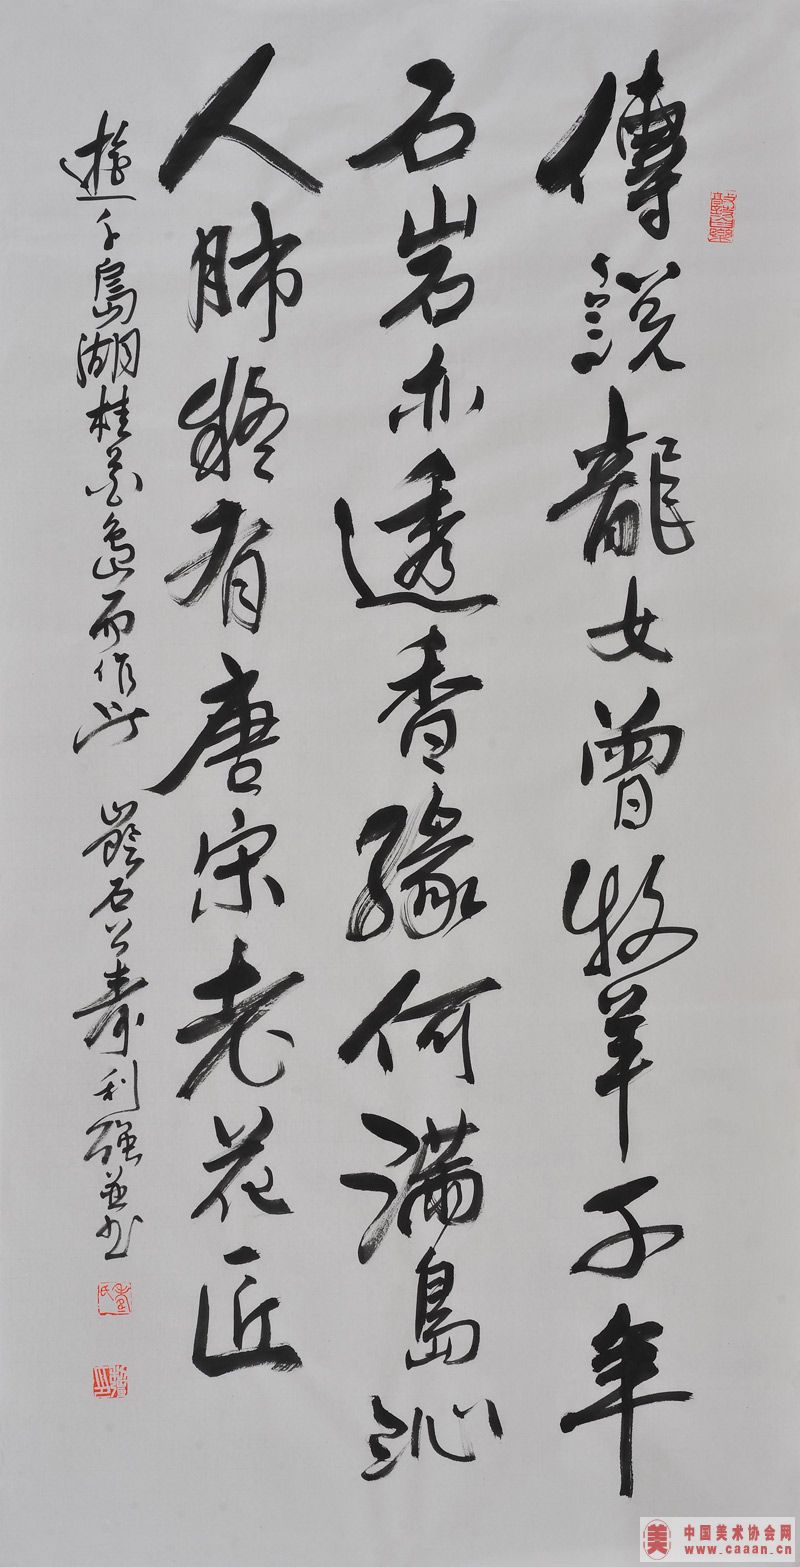 傳說龍女曾牧羊千年
石岩亦透香緣何滿島沁
人肺疑有唐宋老花匠
遊千島湖桂花島而作
石公壽利強並書
中国美术协会网
www.caaan.cn